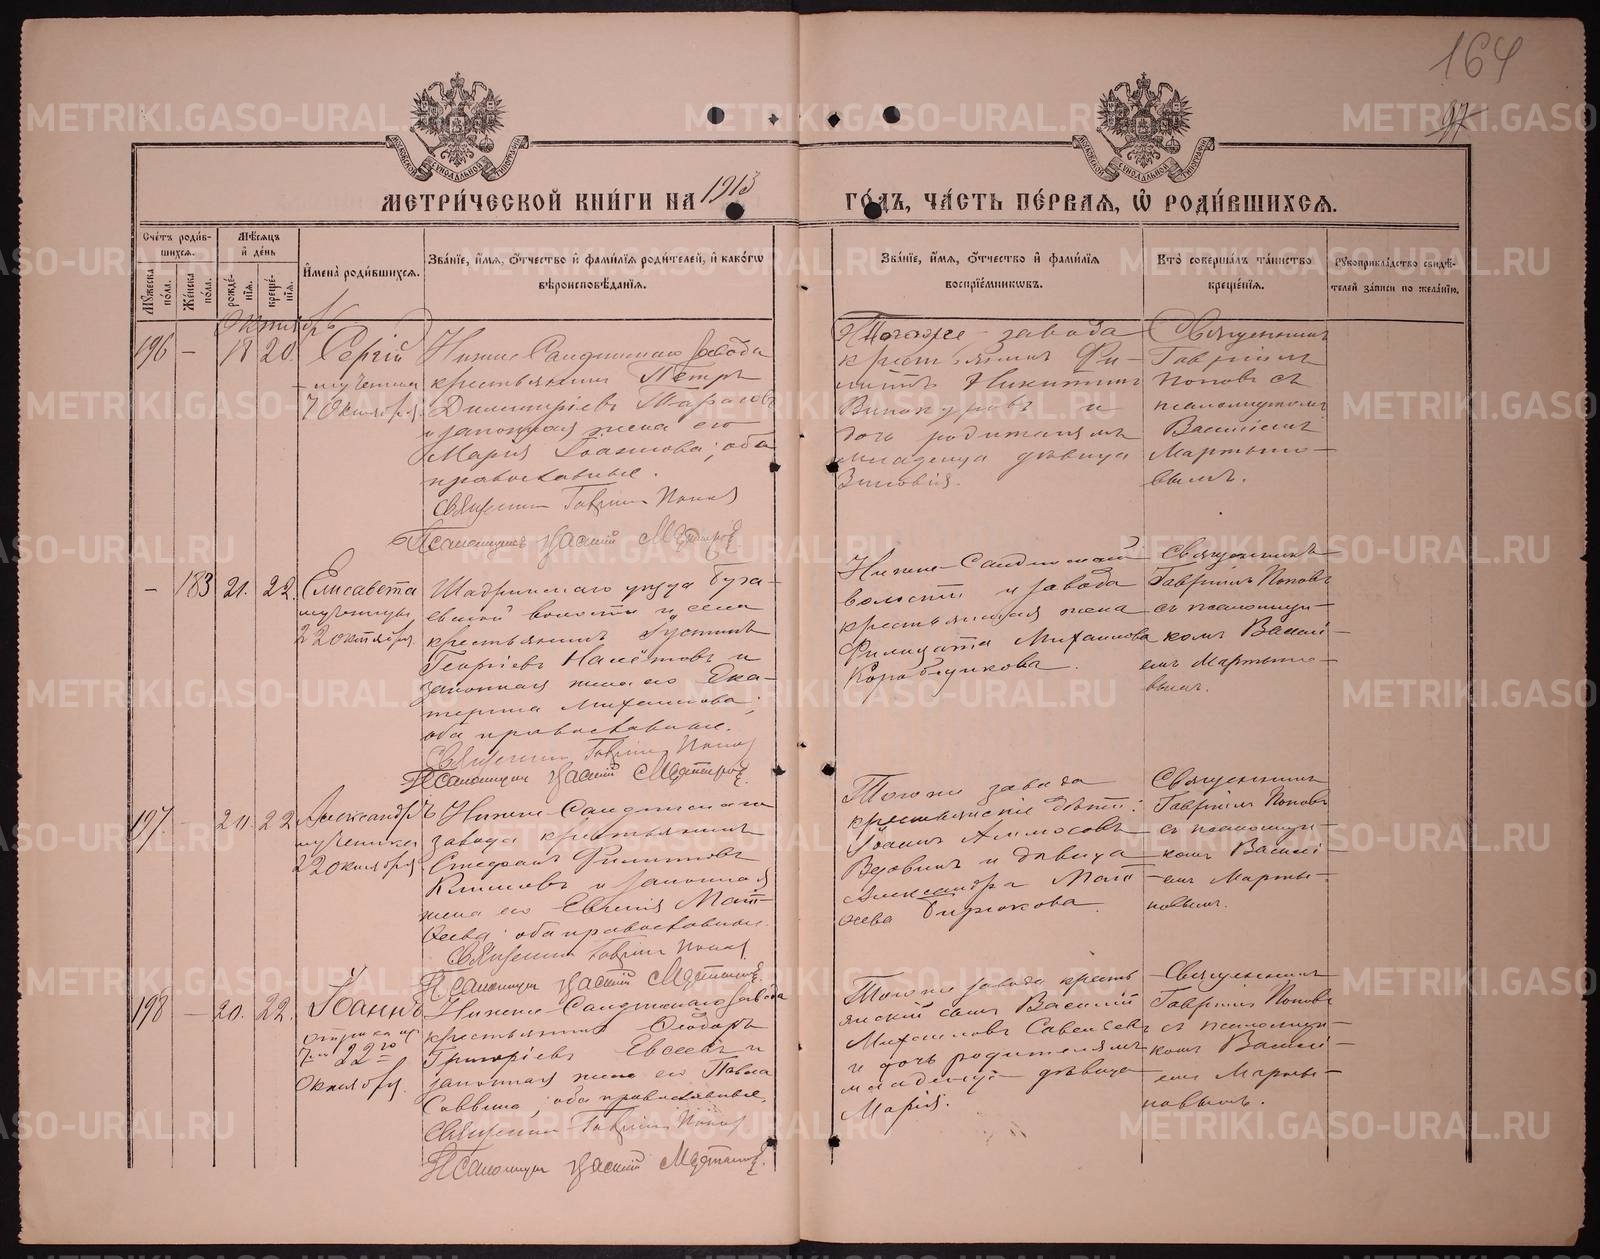 164
97
МЕТРИ́ЧЕСКОЙ КНИ́ГИ НА 1913 ГО́ДЪ, ЧА́СТЬ ПЕ́РВАѦ, Ѡ РОДИ́ВШИХСѦ.
Сче́тъ роди́вшихсѧ.
Мꙋ́жеска по́ла.
Же́нска по́ла.
Мѣ́сѧцъ и҆ де́нь
рожде́нїѧ.
креще́нїѧ.
И҆мена̀ роди́вшихсѧ.
Зва́нїе, и҆́мѧ, ѻ҆́тчество и҆ фами́лїѧ роди́телей, и҆ како́гѡ вѣроисповѣ́данїѧ.
Зва́нїе, и҆́мѧ, ѻ҆́тчество и҆ фами́лїѧ воспрїе́мниковъ.
Кто̀ соверша́лъ та́инство креще́нїѧ.
Рꙋкоприкла́дство свидѣ́телей за́писи по жела́нїю.
Октябрь
196 — 18 20.
Сергій
мученика
7 Октября.
Нижне Салдинскаго завода
крестьянинъ Петръ
Димитріевъ Тарасовъ
и законная жена его
Марія Іоаннова; оба
православные.
Священникъ Гавріилъ Поповъ
Псаломщикъ Василій Мартыновъ
Тогоже завода
крестьянинъ Фи-
липпъ Никитинъ
Винокуровъ и
дочь родителямъ
младенца дѣвица
Зиновія.
Священникъ
Гавріилъ
Поповъ съ
псаломщикомъ
Василіемъ
Мартыно-
вымъ.
— 183 21. 22.
Елисавета
мученицы
22 октября.
Шадринскаго уѣзда Буга-
евской волости и села
крестьянинъ Іустинъ
Георгіевъ Налётовъ и
законная жена его Ека-
терина Михаилова;
оба православные.
Священникъ Гавріилъ Поповъ
Псаломщикъ Василій Мартыновъ.
Нижне-Салдинской
волости и завода
крестьянская жена
Филицата Михаилова
Коробщикова.
Священникъ
Гавріилъ Поповъ
съ псаломщи-
комъ Василі-
емъ Мартыно-
вымъ.
197. — 21 22
Александръ
мученика
22 октября
Нижне Салдинскаго
завода крестьянинъ
Стефанъ Филипповъ
Климовъ и законная
жена его Евгенія Мат-
ѳеева; оба православные.
Священникъ Гавріилъ Поповъ
Псаломщикъ Василій Мартыновъ.
Тогоже завода
крестьянскіе дѣти:
Іоаннъ Аммосовъ
Вдовинъ и дѣвица
Александра Мат-
ѳеева Бирюкова.
Священникъ
Гавріилъ Поповъ
съ псаломщи-
комъ Василі-
емъ Марты-
новымъ.
198 — 20. 22.
Іоаннъ
отрока изъ
7-ми 22го
Октября.
Нижне Салдинскаго завода
крестьянинъ Ѳеодоръ
Григоріевъ Евсеевъ и
законная жена его Павла
Саввина; оба православные.
Священникъ Гавріилъ Поповъ
Псаломщикъ Василій Мартыновъ.
Тогоже завода кресть
янскій сынъ Василій
Михаиловъ Савельевъ
и дочь родителямъ
младенца дѣвица
Марія.
Священникъ
Гавріилъ Поповъ
съ псаломщи-
комъ Василі-
емъ Марты-
новымъ.
METRIKI.GASO-URAL.RU